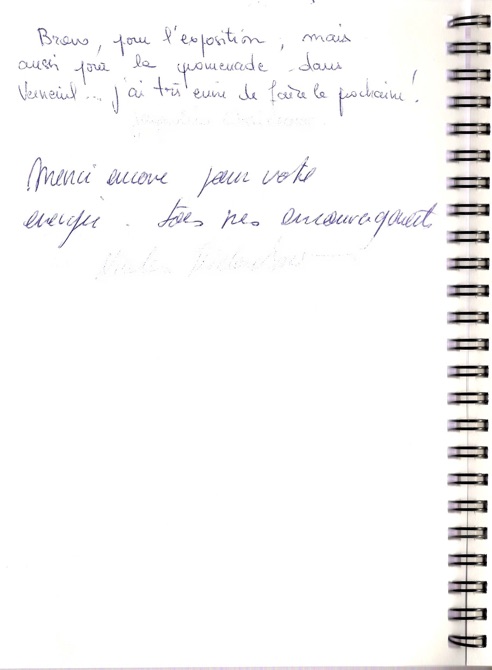 Bravo, pour l'exposition, mais
aussi pour la promenade dans
Verneuil... j'ai très envie de faire la prochaine!
Merci encore pour votre
énergie. Tous mes encouragements